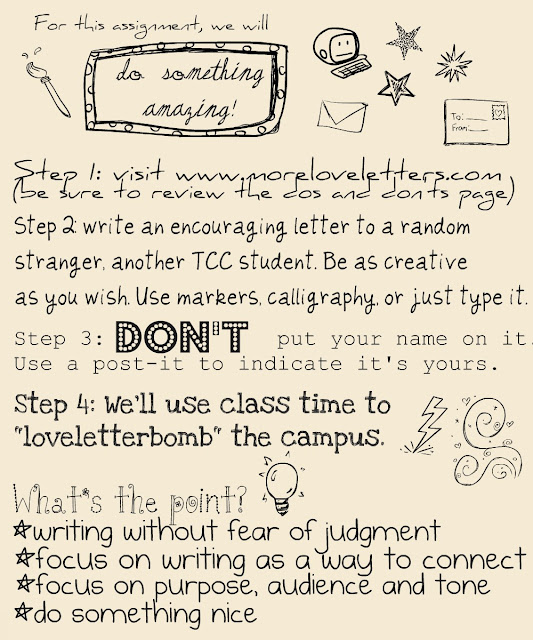 For this assignment, we will
do something
amazing!
To:
From:
Step 1: visit www.moreloveletters.com
(be sure to review the dos and donts page)
Step 2: write an encouraging letter to a random
stranger, another TCC student. Be as creative
as you wish. Use markers, calligraphy, or just type it.
Step 3: DON'T put your name on it.
Use a post-it to indicate it's yours.
Step 4: We'll use class time to
"loveletterbomb" the campus.
What's the point?
*writing without fear of judgment
*focus on writing as a way to connect
*focus on purpose, audience and tone
*do something nice